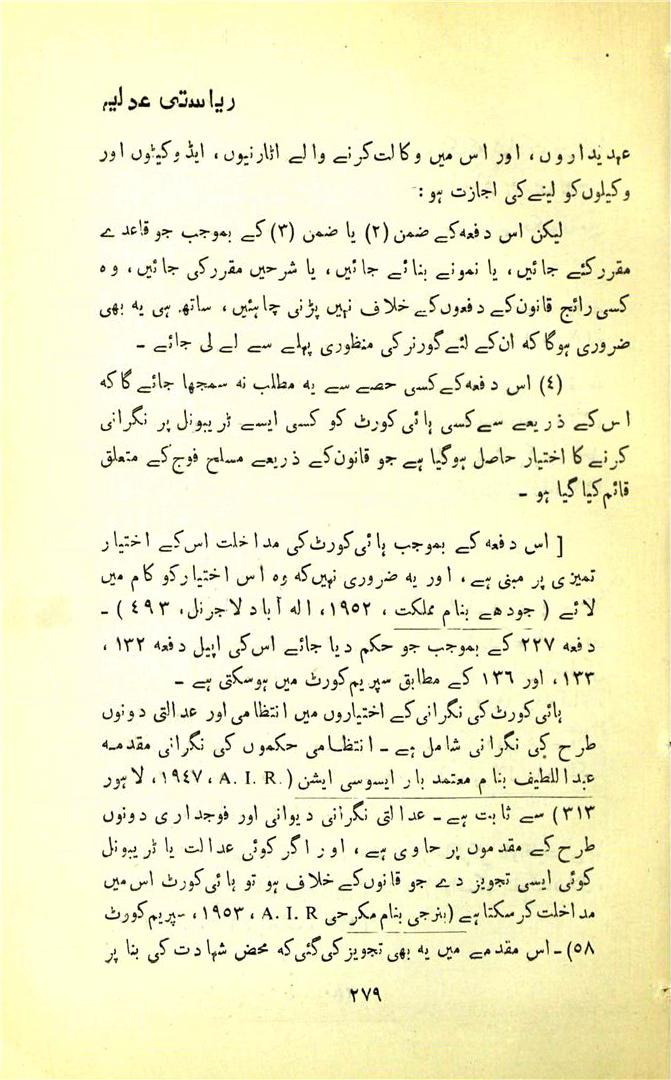 ریاستی عدلیہ
عہدیداروں، اور اس میں وکالت کرنے والے اٹارنیوں، ایڈوکیٹوں اور
وکیلوں کو لینے کی اجازت ہو :
لیکن اس دفعہ کے ضمن (۲) یا ضمن (۳) کے بموجب جو قاعدے
مقرر کئے جائیں، یا نمونے بنائے جائیں، یا شرحیں مقرر کی جائیں، وہ
کسی رائج قانون کے دفعوں کے خلاف نہیں پڑنی چاہئیں، ساتھ ہی یہ بھی
ضروری ہوگا کہ ان کے لئے گورنر کی منظوری پہلے سے لے لی جائے ۔
(٤) اس دفعہ کے کسی حصے سے یہ مطلب نہ سمجھا جائے گا کہ
اس کے ذریعے سے کسی ہائی کورٹ کو کسی ایسے ٹریبونل پر نگرانی
کرنے کا اختیار حاصل ہوگیا ہے جو قانون کے ذریعے مسلح فوج کے متعلق
قائم کیا گیا ہو ۔
[ اس دفعہ کے بموجب ہائی کورٹ کی مداخلت اس کے اختیار
تمیزی پر مبنی ہے، اور یہ ضروری نہیں کہ وہ اس اختیار کو کام میں
لائے ( جودھے بنام مملکت ، ۱۹۵۲، الہ آباد لا جرنل، ٤۹۳ ) ۔
دفعہ ۲۲۷ کے بموجب جو حکم دیا جائے اس کی اپیل دفعہ ۱۳۲ ،
۱۳۳، اور ۱۳٦ کے مطابق سپریم کورٹ میں ہوسکتی ہے ۔
ہائی کورٹ کی نگرانی کے اختیاروں میں انتظامی اور عدالتی دونوں
طرح کی نگرانی شامل ہے ۔ انتظامی حکموں کی نگرانی مقدمہ
عبداللطیف بنام معتمد بار ایسوسی ایشن ( A. I. R. ، ۱۹٤۷، لاہور
۳۱۳) سے ثابت ہے ۔ عدالتی نگرانی دیوانی اور فوجداری دونوں
طرح کے مقدموں پر حاوی ہے ، اور اگر کوئی عدالت یا ٹریبونل
کوئی ایسی تجویز دے جو قانوں کے خلاف ہو تو ہائی کورٹ اس میں
مداخلت کرسکتا ہے (بنرجی بنام مکرجی A. I. R ، ۱۹۵۳، سپریم کورٹ
۵۸) ۔ اس مقدمے میں یہ بھی تجویز کی گئی کہ محض شہادت کی بنا پر
۲۷۹